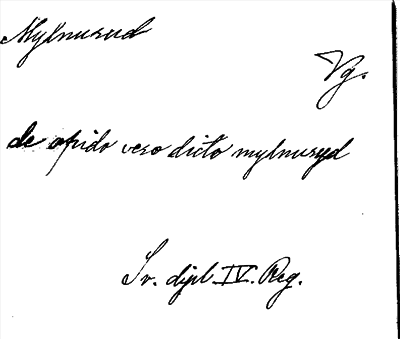 Mylnuryd
Vg.
de opido vero dicto mylnuryd
Sv. dipl. IV. Reg.